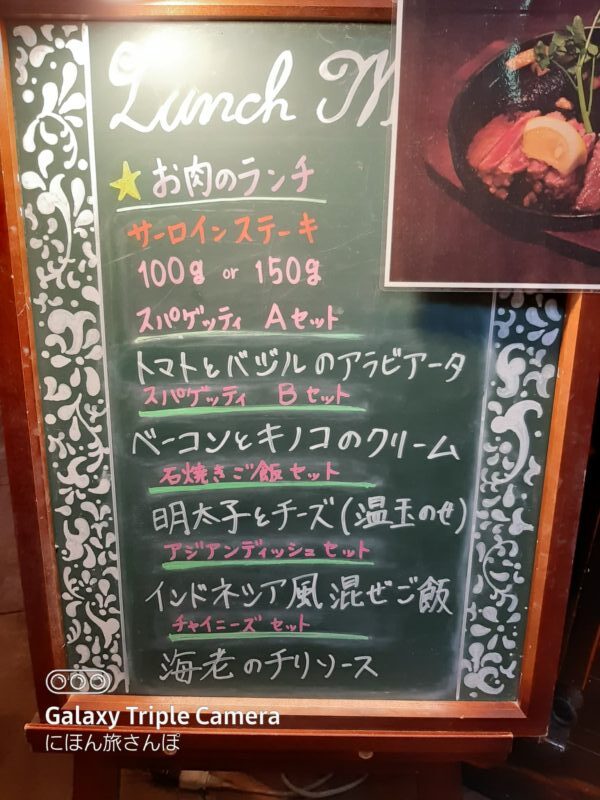 Lunch M
お肉のランチ
サーロインステーキ
100g or 150g
スパゲッティ Aセット
トマトとバジルのアラビアータ
スパゲッティ Bセット
ベーコンとキノコのクリーム
石焼きご飯セット
明太子とチーズ(温玉のせ)
アジアンディッシュセット
インドネシア風混ぜご飯
チャイニーズセット
海老のチリソース
Galaxy Triple Camera
にほん旅さんぽ